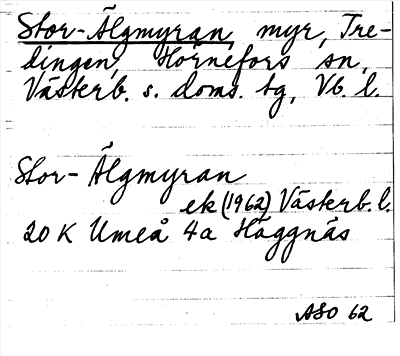 Stor-Älgmyran, myr, Tre-
dingen, Hörnefors sn,
Västerb. s. doms. tg, Vb. l.
Stor-Älgmyran
ek (1962) Västerb. l.
20 K Umeå 4a Häggnäs
ASO 62